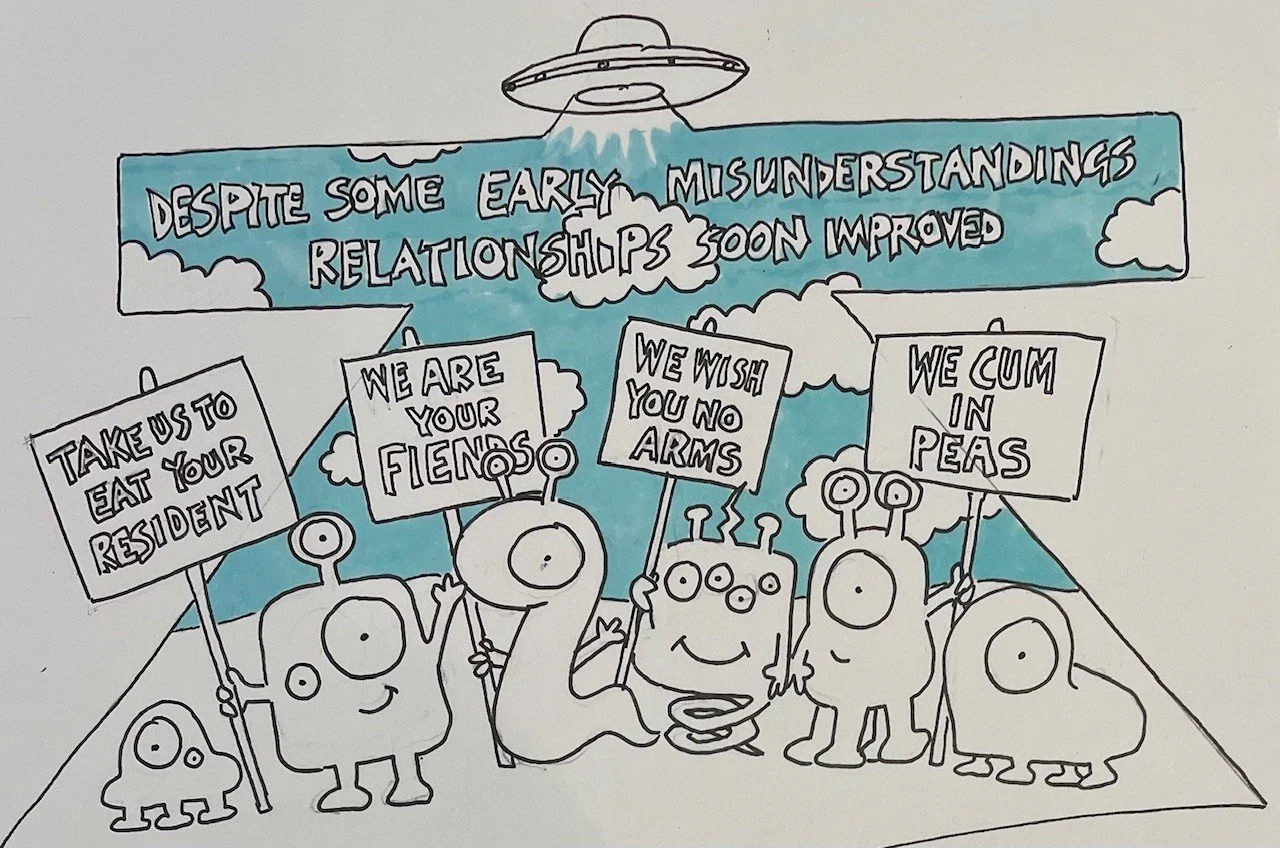 DESPITE SOME EARLY MISUNDERSTANDINGS
RELATIONSHIPS SOON IMPROVED
TAKE US TO
EAT YOUR
RESIDENT
WE ARE
YOUR
FIENDS
WE WISH
YOU NO
ARMS
WE CUM
IN
PEAS